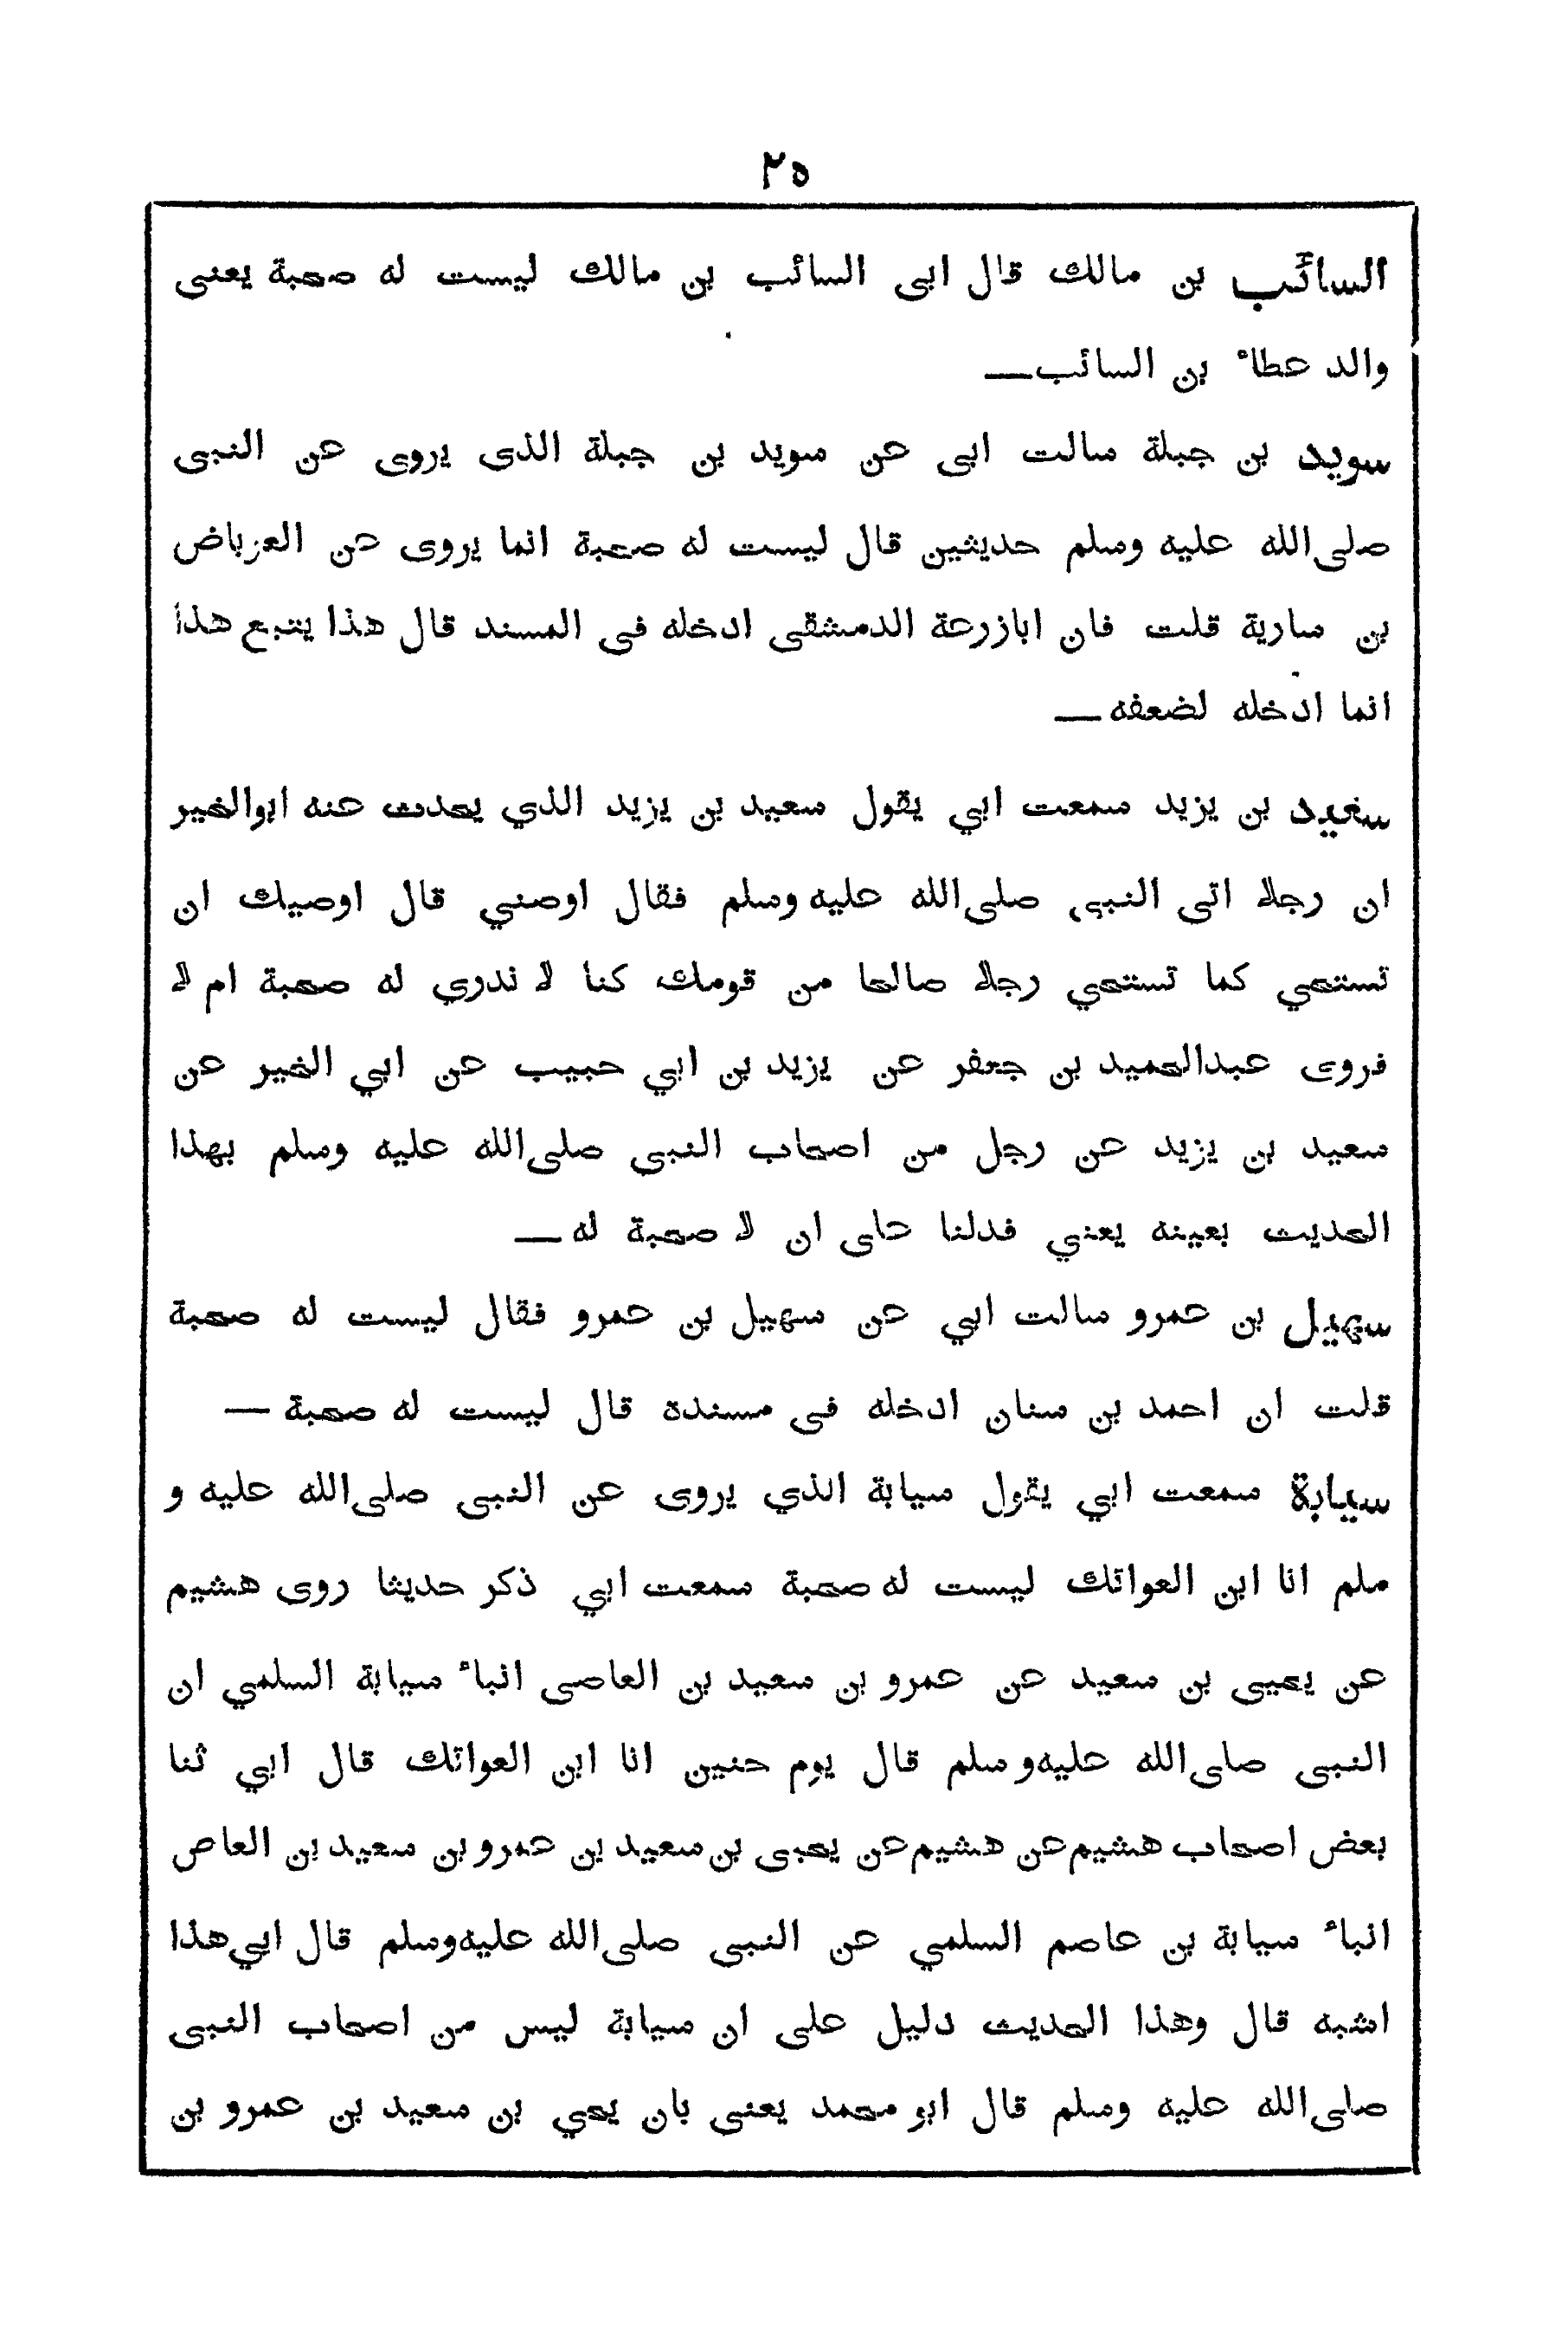 ٢٥
السائب بن مالك قال ابى السائب بن مالك ليست له صحبة يعنى
والد عطاء بن السائب—
سويد بن جبلة سالت ابى عن سويد بن جبلة الذى يروى عن النبى
صلى الله عليه وسلم حديثين قال ليست له صحبة انما يروى عن العرباض
بن سارية قلت فان ابازرعة الدمشقى ادخله فى المسند قال هذا يتبع هذا
انما ادخله لضعفه—
سعيد بن يزيد سمعت ابي يقول سعيد بن يزيد الذي يحدث عنه ابوالخير
ان رجلا اتى النبى صلى الله عليه وسلم فقال اوصني قال اوصيك ان
تستحي كما تستحي رجلا صالحا من قومك كنا لا ندري له صحبة ام لا
فروى عبدالحميد بن جعفر عن يزيد بن ابي حبيب عن ابي الخير عن
سعيد بن يزيد عن رجل من اصحاب النبى صلى الله عليه وسلم بهذا
الحديث بعينه يعني فدلنا على ان لا صحبة له—
سهيل بن عمرو سالت ابي عن سهيل بن عمرو فقال ليست له صحبة
قلت ان احمد بن سنان ادخله فى مسنده قال ليست له صحبة—
سيابة سمعت ابي يقول سيابة الذي يروى عن النبى صلى الله عليه و
سلم انا ابن العواتك ليست له صحبة سمعت ابي ذكر حديثا روى هشيم
عن يحيى بن سعيد عن عمرو بن سعيد بن العاصى انباء سيابة السلمي ان
النبى صلى الله عليه وسلم قال يوم حنين انا ابن العواتك قال ابي ثنا
بعض اصحاب هشيم عن هشيم عن يحيى بن سعيد بن عمرو بن سعيد بن العاص
انباء سيابة بن عاصم السلمي عن النبى صلى الله عليه وسلم قال ابي هذا
اشبه قال وهذا الحديث دليل على ان سيابة ليس من اصحاب النبى
صلى الله عليه وسلم قال ابو محمد يعنى بان يحي بن سعيد بن عمرو بن